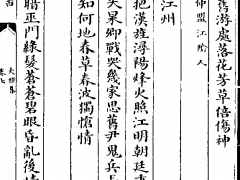 舊游處落花芳草倍傷神
仲盟江陰人
江州
把漢旌潯陽烽火照江明朝廷重
失杲卿戰哭幾家思舊尹鬼兵長
如何地春草春波獨愴情
腊巫門綠髮蒼蒼碧眼昏亂後